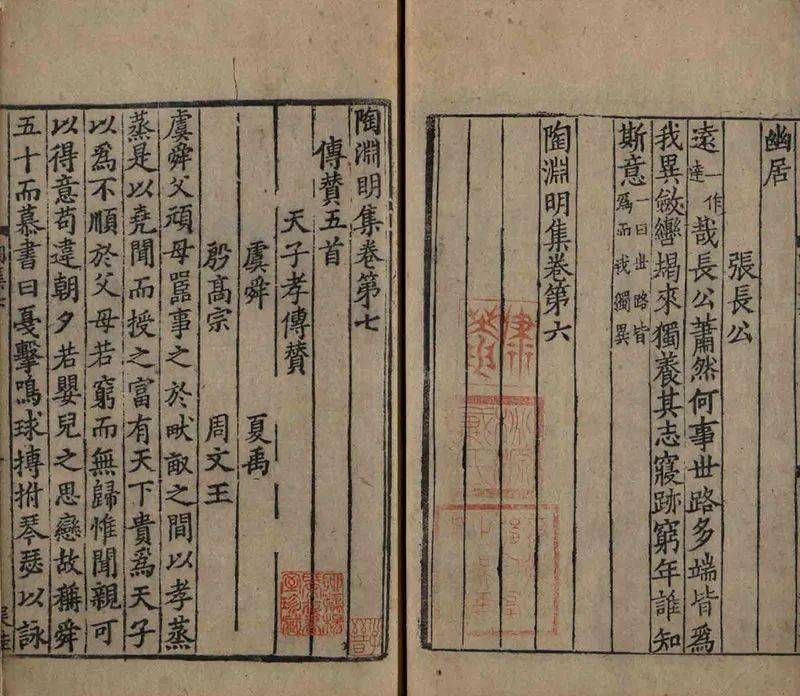 幽居
張長公
遠一作達哉長公蕭然何事世路多端皆爲
我異斂轡朅來獨養其志寢跡窮年誰知
斯意一曰世路皆爲而我獨異
陶淵明集卷第六
陶淵明集卷第七
傳贊五首
天子孝傳贊
虞舜 夏禹
殷髙宗 周文王
虞舜父頑母嚚事之於畎畝之間以孝蒸
蒸是以堯聞而授之富有天下貴爲天子
以爲不順於父母若窮而無歸惟聞親可
以得意苟違朝夕若嬰兒之思戀故稱舜
五十而慕書曰戞擊鳴球搏拊琴瑟以詠